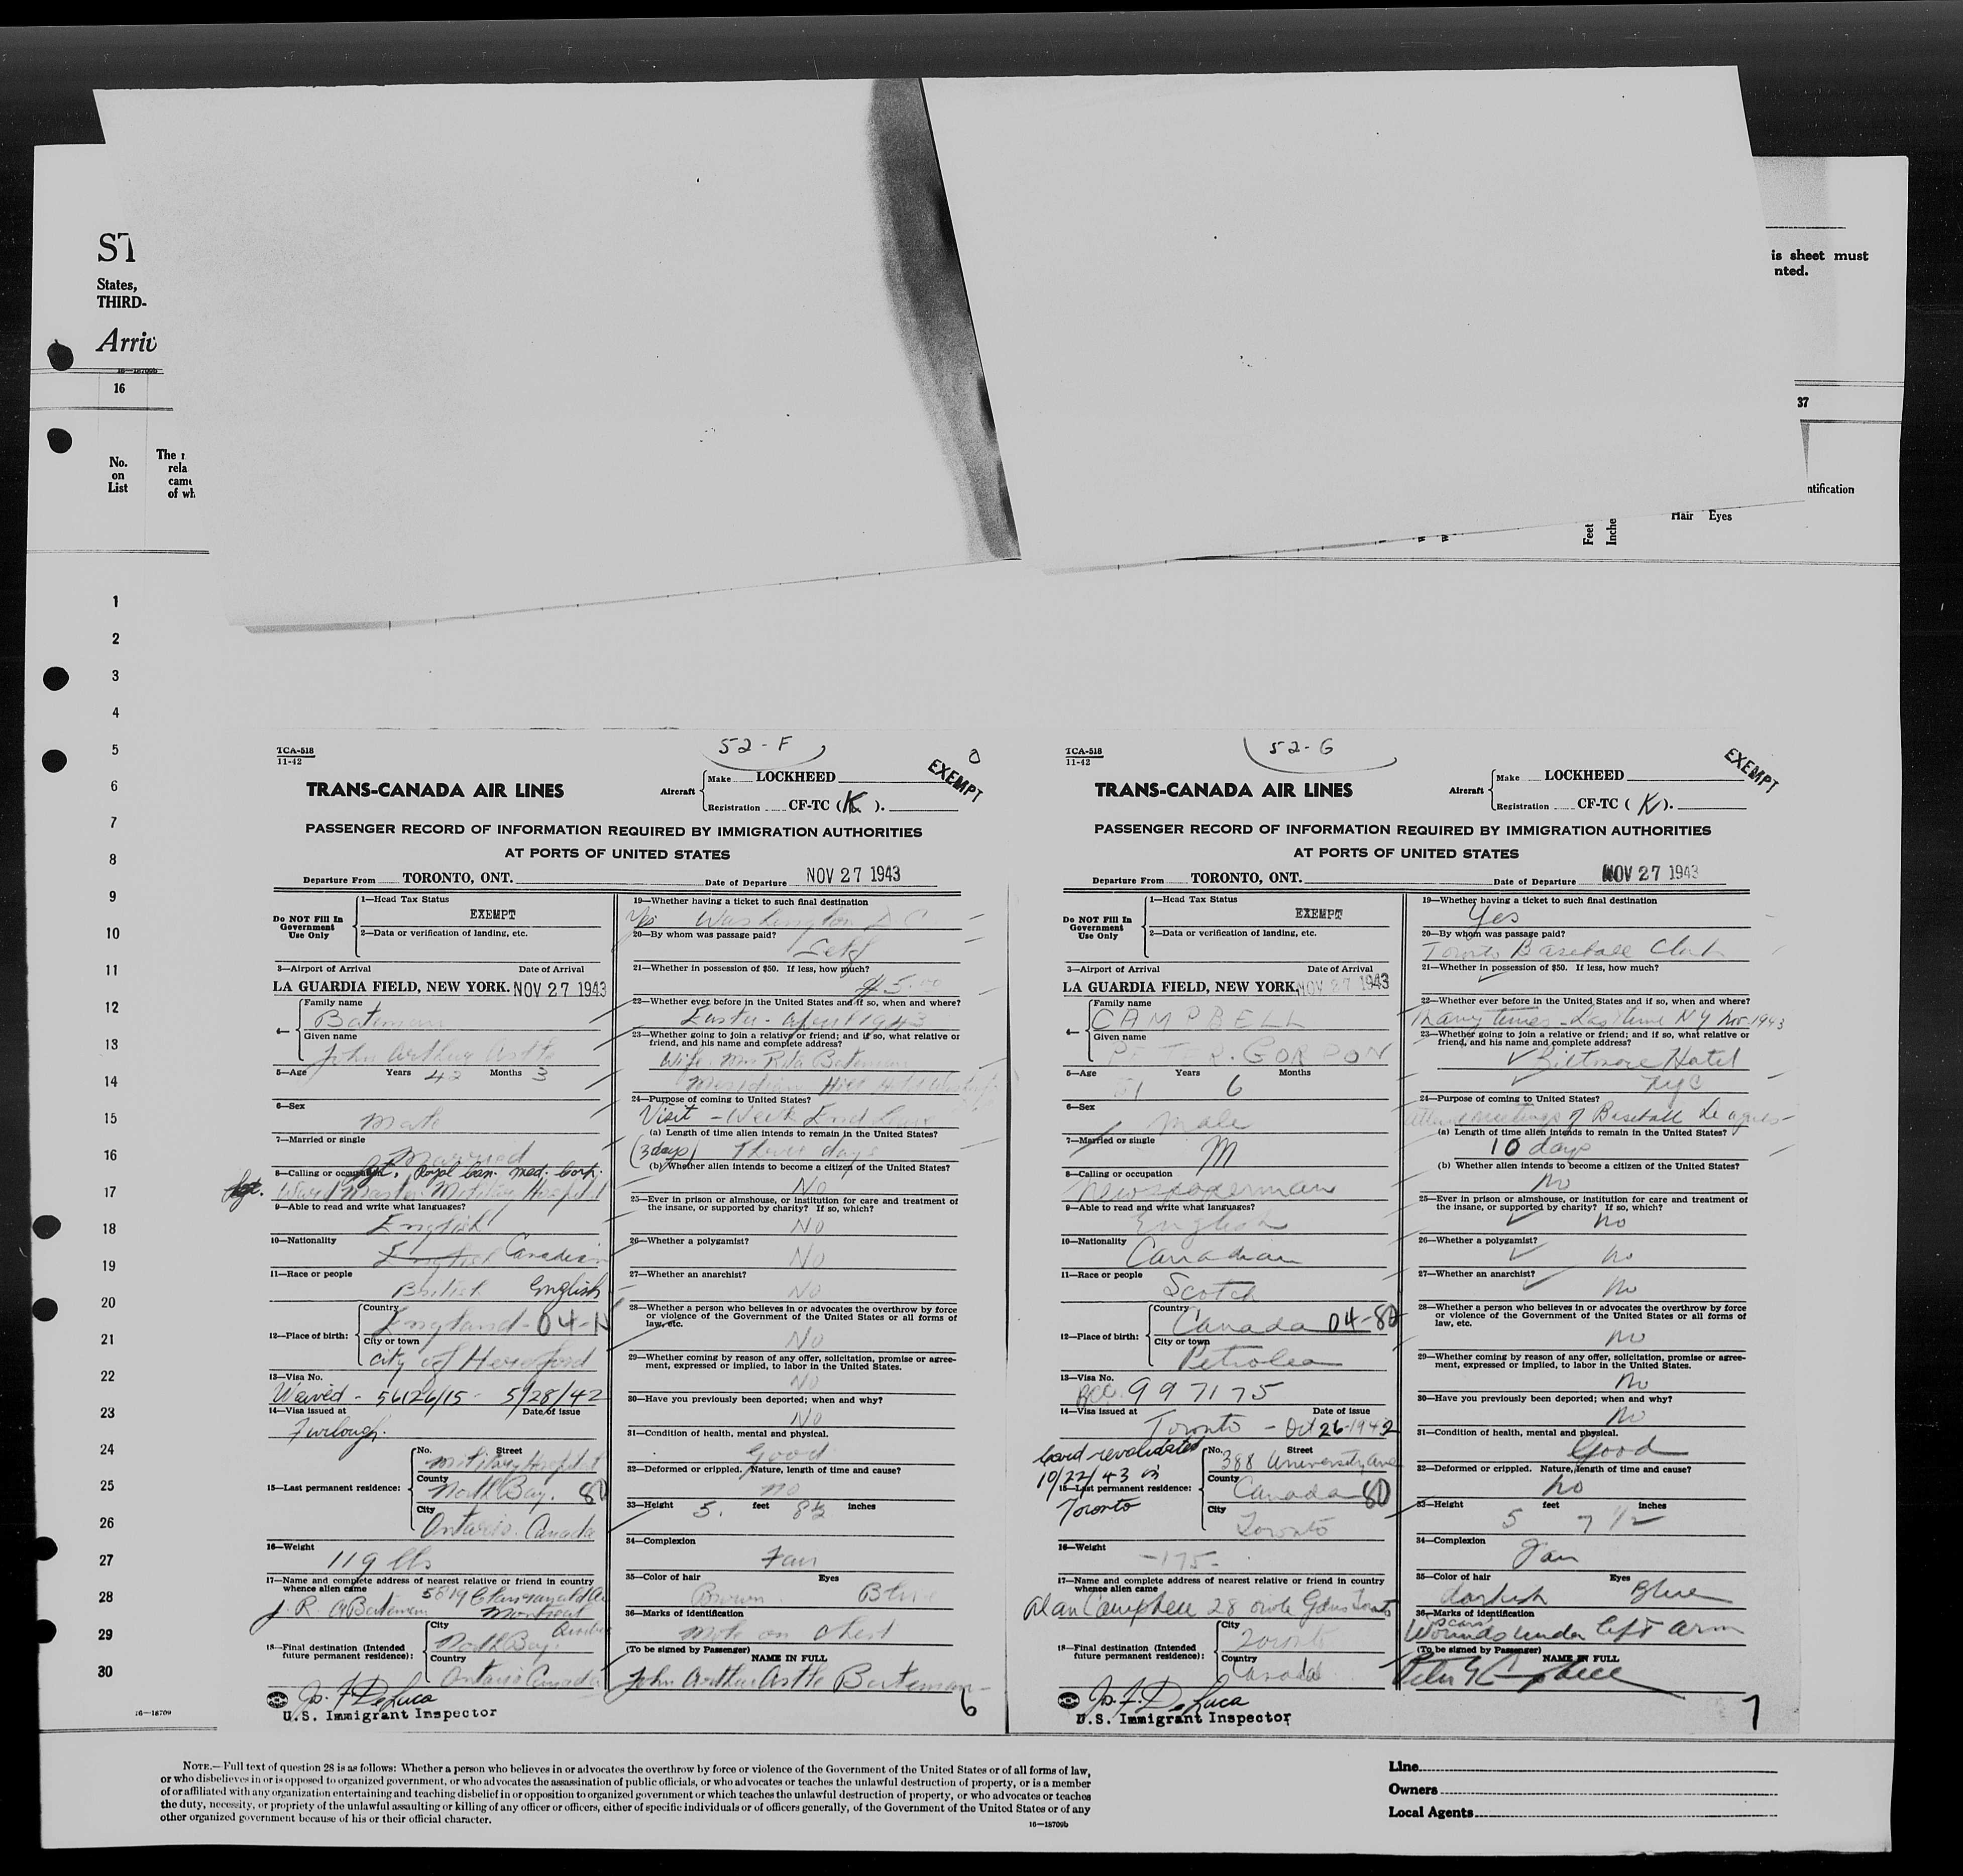 ST
States,
THIRD-
Arriv
16—18709b
16
No.
on
List
The r
rela
came
of wh
is sheet must
nted.
37
ntification
Feet
Inche
Hair Eyes
1
2
3
4
5
6
7
8
9
10
11
12
13
14
15
16
17
18
19
20
21
22
23
24
25
26
27
28
29
30
16—18709
52-F
TCA-518
11-42
EXEMPT
TRANS-CANADA AIR LINES
Aircraft
Make LOCKHEED
Registration CF-TC (K).
PASSENGER RECORD OF INFORMATION REQUIRED BY IMMIGRATION AUTHORITIES
AT PORTS OF UNITED STATES
Departure From TORONTO, ONT. Date of Departure NOV 27 1943
Do NOT Fill In
Government
Use Only
1—Head Tax Status
EXEMPT
2—Data or verification of landing, etc.
3—Airport of Arrival Date of Arrival
LA GUARDIA FIELD, NEW YORK. NOV 27 1943
4—
Family name
Bateman
Given name
John Arthur Astle
5—Age Years 42 Months 3
6—Sex
Male
7—Married or single
Married
8—Calling or occupation
Sgt. Royal Can. Med. Corp.
Ward Master Military Hospital
9—Able to read and write what languages?
English
10—Nationality
English Canadian
11—Race or people
British English
12—Place of birth:
Country
England - 04-N
City or town
City of Hereford
13—Visa No.
Waived - 56/26/15 - 5/28/42
14—Visa issued at Date of issue
Furlough.
15—Last permanent residence:
No. Street
Military Hospital
County
North Bay. 80
City
Ontario. Canada
16—Weight
119 lbs
17—Name and complete address of nearest relative or friend in country
whence alien came
5819
J. R. Bateman Montreal
Quebec
18—Final destination (Intended
future permanent residence):
City
North Bay.
Country
Ontario Canada
Jos. F. DeLuca
U.S. Immigrant Inspector
19—Whether having a ticket to such final destination
Yes Washington D C
20—By whom was passage paid?
Self
21—Whether in possession of $50. If less, how much?
22—Whether ever before in the United States and if so, when and where?
Easter - April 1943
23—Whether going to join a relative or friend; and if so, what relative or
friend, and his name and complete address?
Wife. Mrs Rita Bateman
Meridian Hill Hotel
24—Purpose of coming to United States?
Visit - Week End Leave
(a) Length of time alien intends to remain in the United States?
(3 days) Three days
(b) Whether alien intends to become a citizen of the United States?
No
25—Ever in prison or almshouse, or institution for care and treatment of
the insane, or supported by charity? If so, which?
No
26—Whether a polygamist?
No
27—Whether an anarchist?
No
28—Whether a person who believes in or advocates the overthrow by force
or violence of the Government of the United States or all forms of
law, etc.
No
29—Whether coming by reason of any offer, solicitation, promise or agree-
ment, expressed or implied, to labor in the United States.
No
30—Have you previously been deported; when and why?
No
31—Condition of health, mental and physical.
Good
32—Deformed or crippled. Nature, length of time and cause?
no
33—Height 5. feet 8½ inches
34—Complexion
Fair
35—Color of hair Eyes
Brown Blue
36—Marks of identification
Mole on Chest
(To be signed by Passenger)
NAME IN FULL
John Arthur Astle Bateman
6
52-G
TCA-518
11-42
EXEMPT
TRANS-CANADA AIR LINES
Aircraft
Make LOCKHEED
Registration CF-TC (K).
PASSENGER RECORD OF INFORMATION REQUIRED BY IMMIGRATION AUTHORITIES
AT PORTS OF UNITED STATES
Departure From TORONTO, ONT. Date of Departure NOV 27 1943
Do NOT Fill In
Government
Use Only
1—Head Tax Status
EXEMPT
2—Data or verification of landing, etc.
3—Airport of Arrival Date of Arrival
LA GUARDIA FIELD, NEW YORK. NOV 27 1943
4—
Family name
CAMPBELL
Given name
PETER. GORDON
5—Age Years Months
51 6
6—Sex
Male
7—Married or single
M
8—Calling or occupation
Newspaperman
9—Able to read and write what languages?
English
10—Nationality
Canadian
11—Race or people
Scotch
12—Place of birth:
Country
Canada 04-80
City or town
Petrolea
13—Visa No.
BCC. 997175
14—Visa issued at Date of issue
Toronto - Oct 26-1942
Card revalidated
10/22/43 in
Toronto
15—Last permanent residence:
No. Street
388 University Ave
County
Canada 80
City
Toronto
16—Weight
-175-
17—Name and complete address of nearest relative or friend in country
whence alien came
Alan Campbell 28 Oriole Gdns Toronto
18—Final destination (Intended
future permanent residence):
City
Toronto
Country
Canada
Jos. F. DeLuca
U.S. Immigrant Inspector
19—Whether having a ticket to such final destination
Yes
20—By whom was passage paid?
Toronto Baseball Club
21—Whether in possession of $50. If less, how much?
22—Whether ever before in the United States and if so, when and where?
Many times - Last time N Y Nov. 1943
23—Whether going to join a relative or friend; and if so, what relative or
friend, and his name and complete address?
Biltmore Hotel
NYC
24—Purpose of coming to United States?
Attend meetings of Baseball Leagues
(a) Length of time alien intends to remain in the United States?
10 days
(b) Whether alien intends to become a citizen of the United States?
No
25—Ever in prison or almshouse, or institution for care and treatment of
the insane, or supported by charity? If so, which?
No
26—Whether a polygamist?
No
27—Whether an anarchist?
No
28—Whether a person who believes in or advocates the overthrow by force
or violence of the Government of the United States or all forms of
law, etc.
No
29—Whether coming by reason of any offer, solicitation, promise or agree-
ment, expressed or implied, to labor in the United States.
No
30—Have you previously been deported; when and why?
No
31—Condition of health, mental and physical.
Good
32—Deformed or crippled. Nature, length of time and cause?
No
33—Height feet inches
5 7 1/2
34—Complexion
Fair
35—Color of hair Eyes
darkish Blue
36—Marks of identification
scars
Wounds under left arm
(To be signed by Passenger)
NAME IN FULL
Peter G Campbell
7
NOTE.—Full text of question 28 is as follows: Whether a person who believes in or advocates the overthrow by force or violence of the Government of the United States or of all forms of law,
or who disbelieves in or is opposed to organized government, or who advocates the assassination of public officials, or who advocates or teaches the unlawful destruction of property, or is a member
of or affiliated with any organization entertaining and teaching disbelief in or opposition to organized government or which teaches the unlawful destruction of property, or who advocates or teaches
the duty, necessity, or propriety of the unlawful assaulting or killing of any officer or officers, either of specific individuals or of officers generally, of the Government of the United States or of any
other organized government because of his or their official character.
16—18709b
Line
Owners
Local Agents